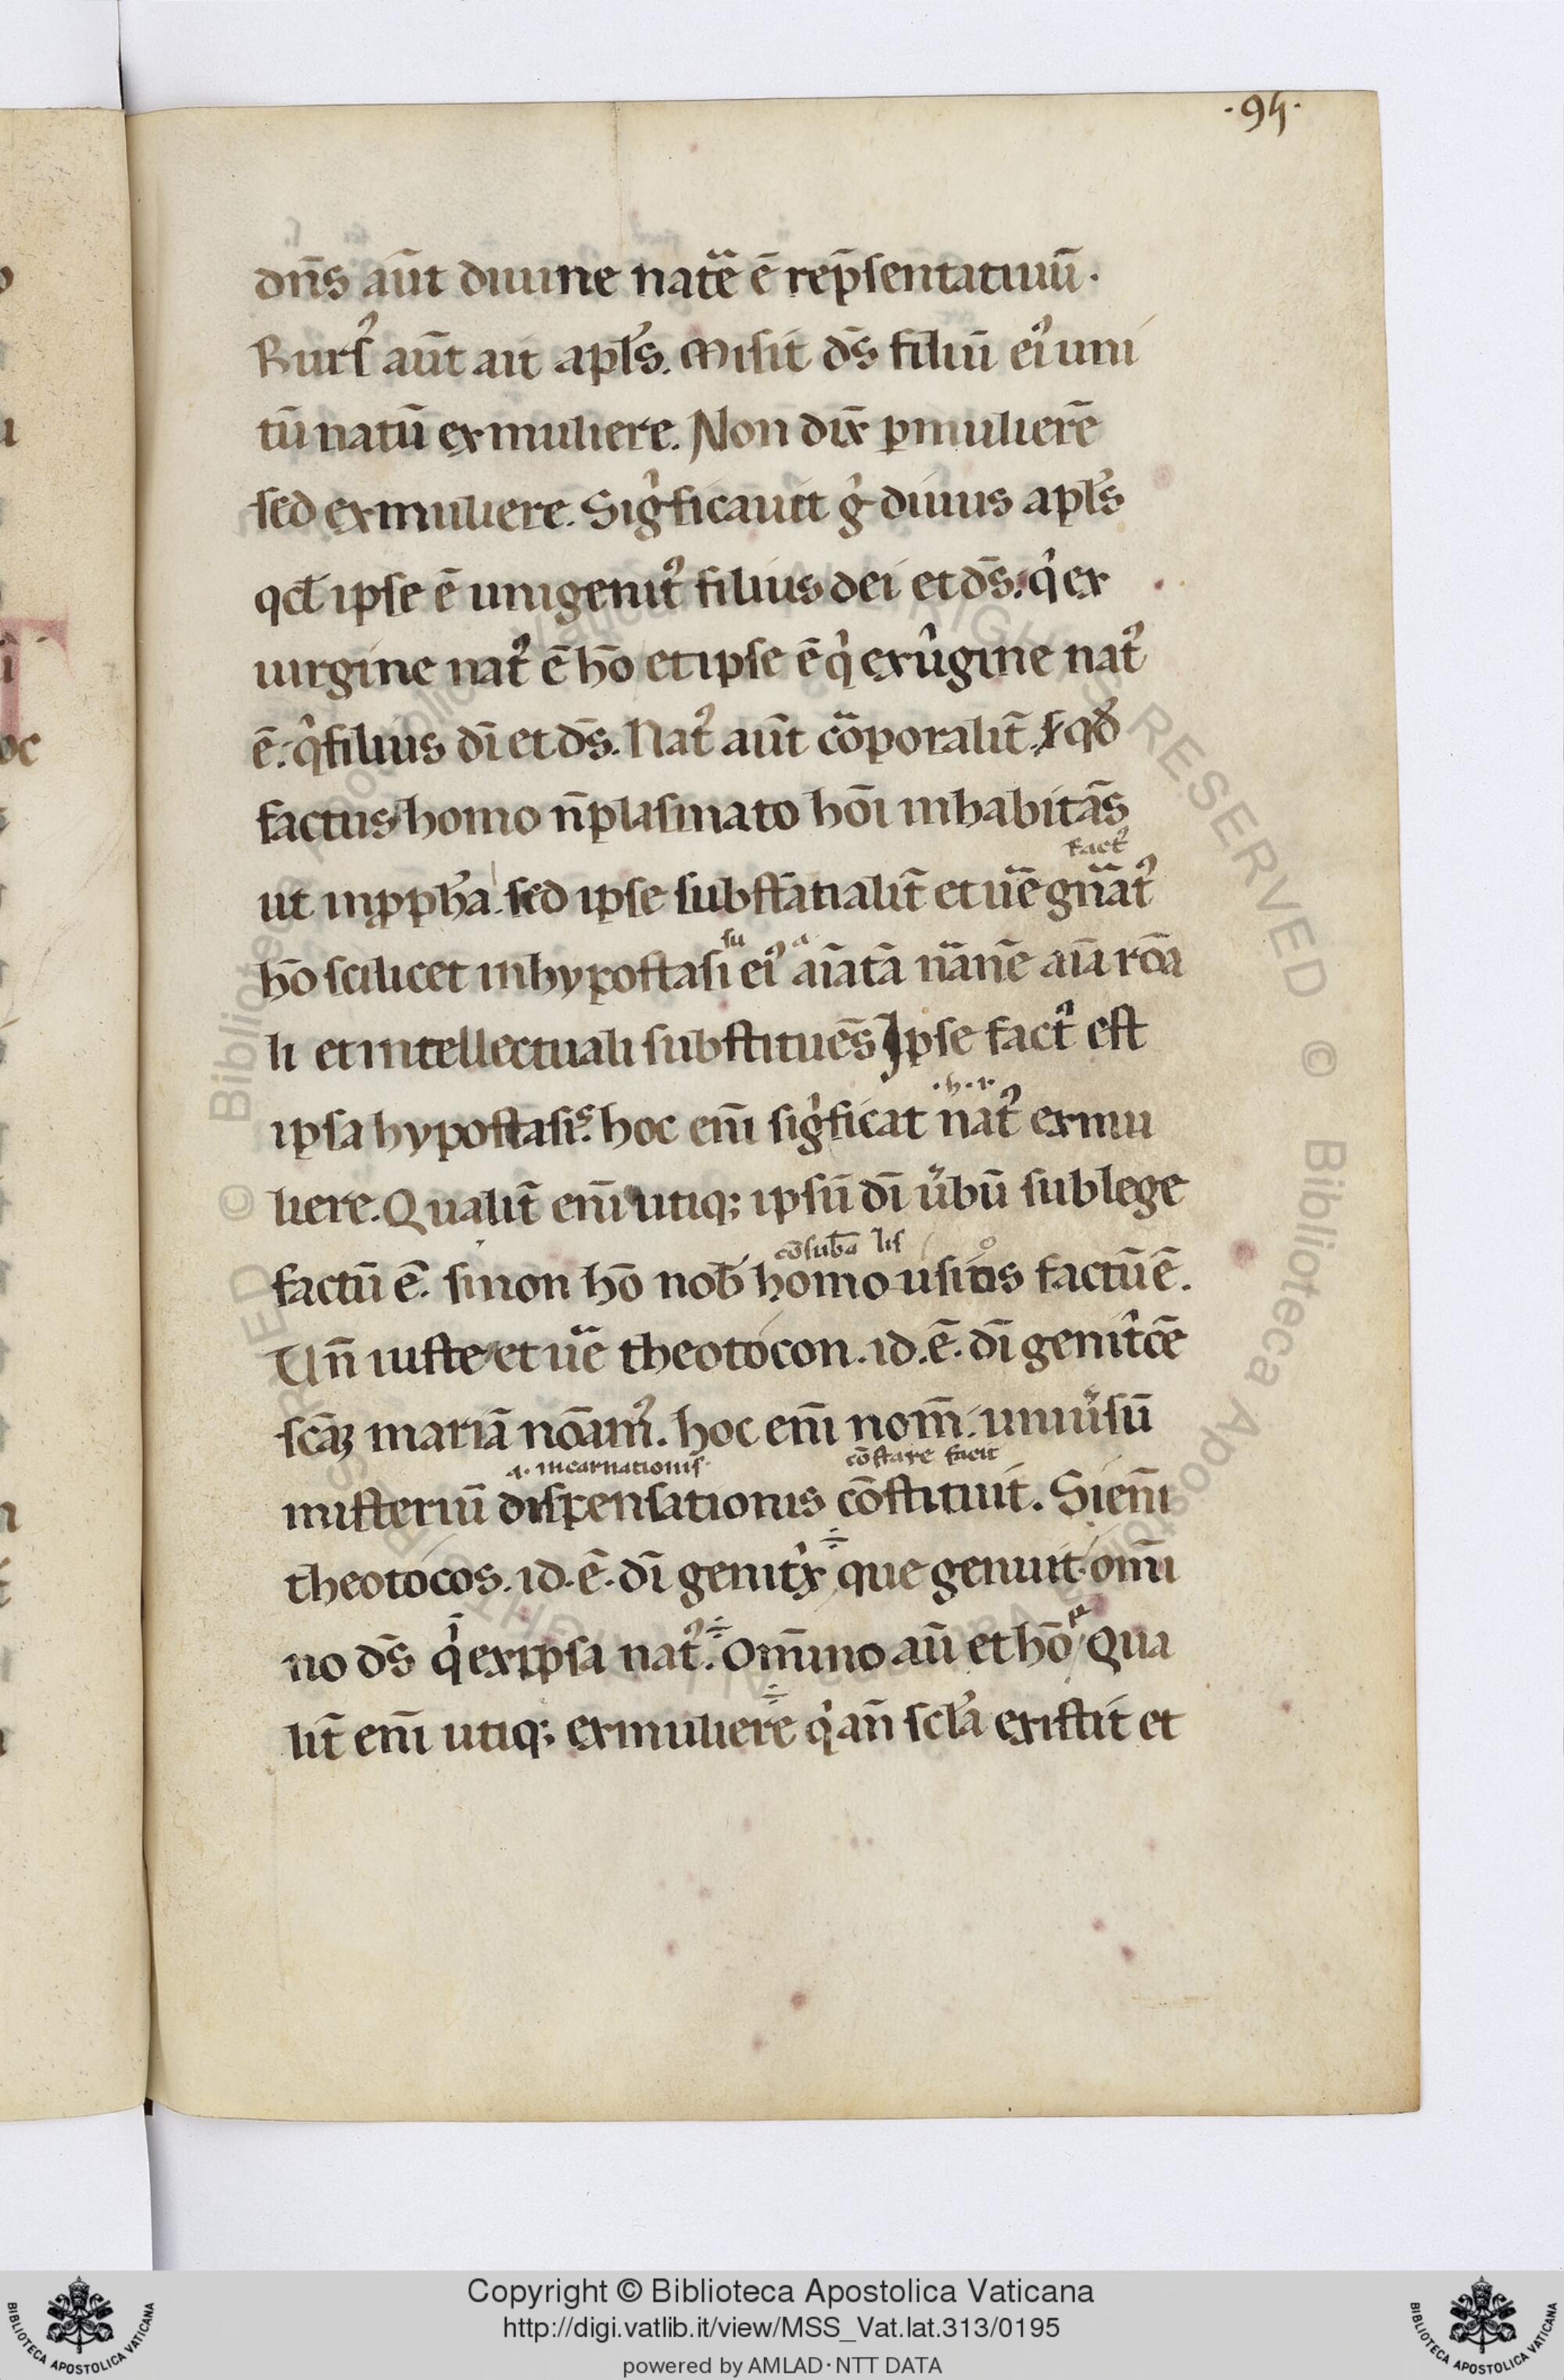 ·95·
dn̄s aūt diuine nat̄e ē rep̄sentatiuū.
Rursꝰ aūt ait apl̄s. Misit d̄s filiū eiꝰ uni
tū natū ex muliere. Non dix̄ ꝑ mulierē
sed ex muliere. Sigͥficauit gͥ diuus apl̄s
qđ ipse ē unigenitꝰ filius dei et d̄s. qͥ ex
uirgine natꝰ ē hō et ipse ē qͥ ex uͥgine natꝰ
ē. qͥ filius dī et d̄s. Natꝰ aūt cōꝛporalit̄. s qđ
factus homo n̄ plasmato hōi inhabitās
factꝰ
ut in ꝓph̄a. sed ipse subst̄atialit̄ et ūe gn̄atꝰ
su a
hō scilicet in hypostasi eiꝰ aīatā nānē aīa rōa
li et intellectuali substituēs Ipse factꝰ est
.h.v.
ipsa hypostasis. hoc enī sigͥficat natꝰ ex mu
liere. Qualit̄ enī utiqꝫ ipsū dī ūbū sub lege
cōsub̄a lis
factū ē. si non hō nob̄ homo usiios factū ē.
o
Un̄ iuste et ūe theotocon. id. ē. dī genitͥcē
scāꝫ mariā nōamꝰ. hoc enī nom̄. uniūsū
.i. incarnationis cōstare facit
misteriū dispensationis cōstituit. Si enī
theotocos. id. ē. dī genitͥx que genuit. omī
no d̄s qͥ ex ipsa natꝰ. Om̄ino aū et hō Qua
lit̄ enī utiqꝫ ex muliere qͥ an̄ scl̄a existit et
Copyright © Biblioteca Apostolica Vaticana
http://digi.vatlib.it/view/MSS_Vat.lat.313/0195
powered by AMLAD·NTT DATA
BIBLIOTECA APOSTOLICA VATICANA
BIBLIOTECA APOSTOLICA VATICANA